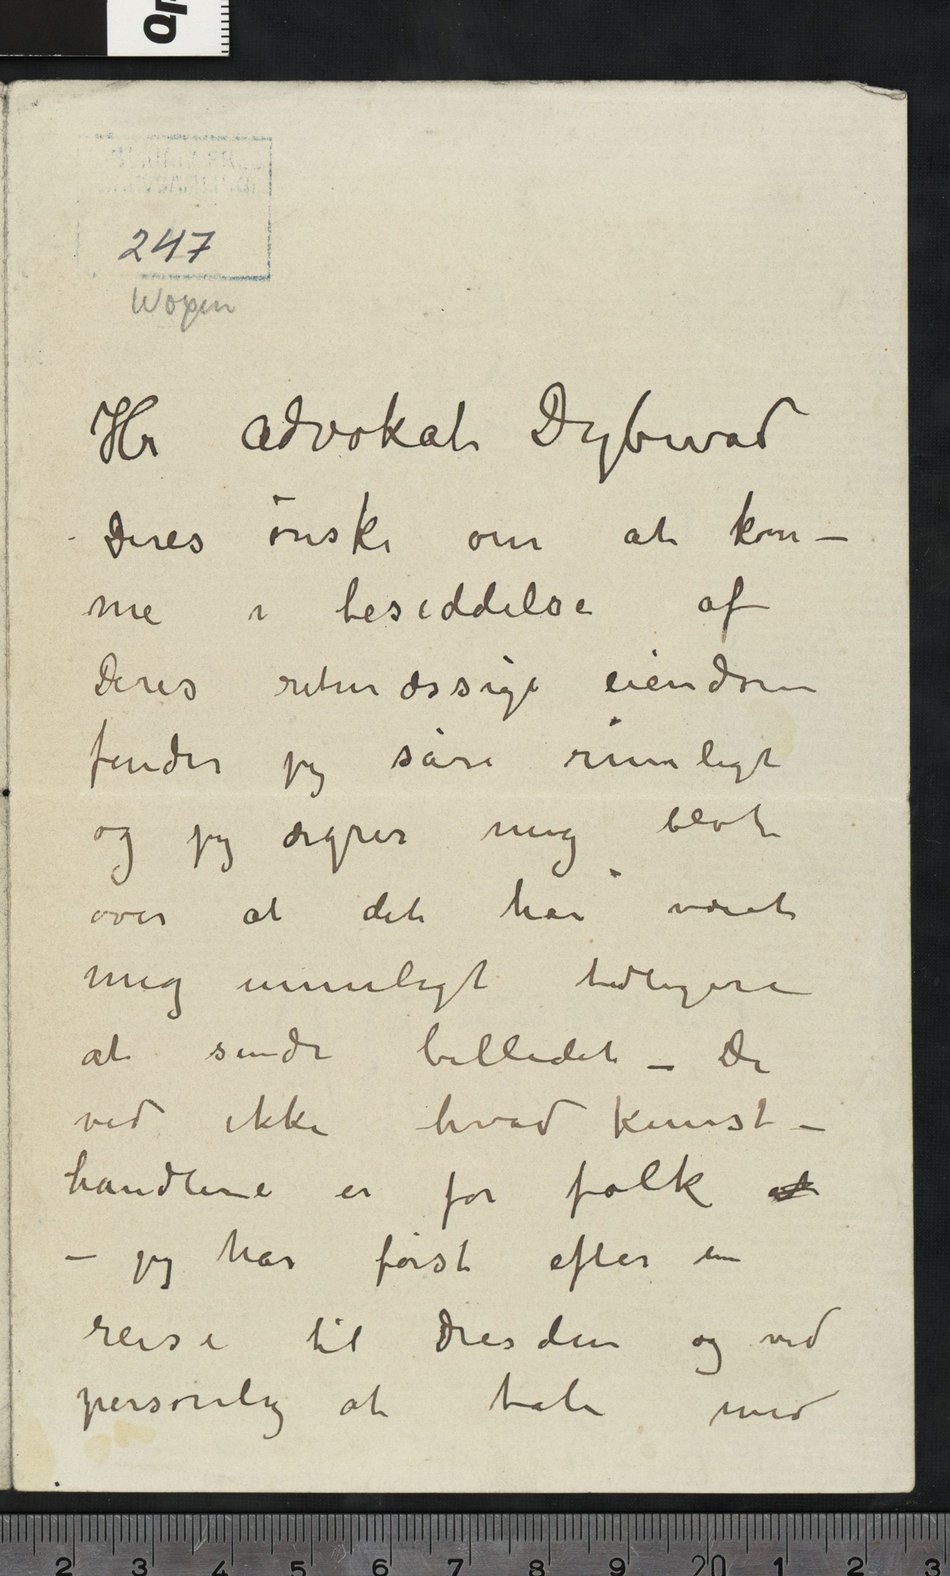 247
Wopen
Hr Advokat Dybwad
Deres önske om at kom–
me i besiddelse af
Deres retmæssige eiendom
finder jeg såre rimeligt
og jeg ærgrer mig blot
over at det har været
mig umuligt tidligere
at sende billedet – De
ved ikke hvad Kunst–
handlerne er for folk at
– jeg har först efter en
reise til Dresden og ved
personlig at tale med
2 3 4 5 6 7 8 9 20 1 2 3